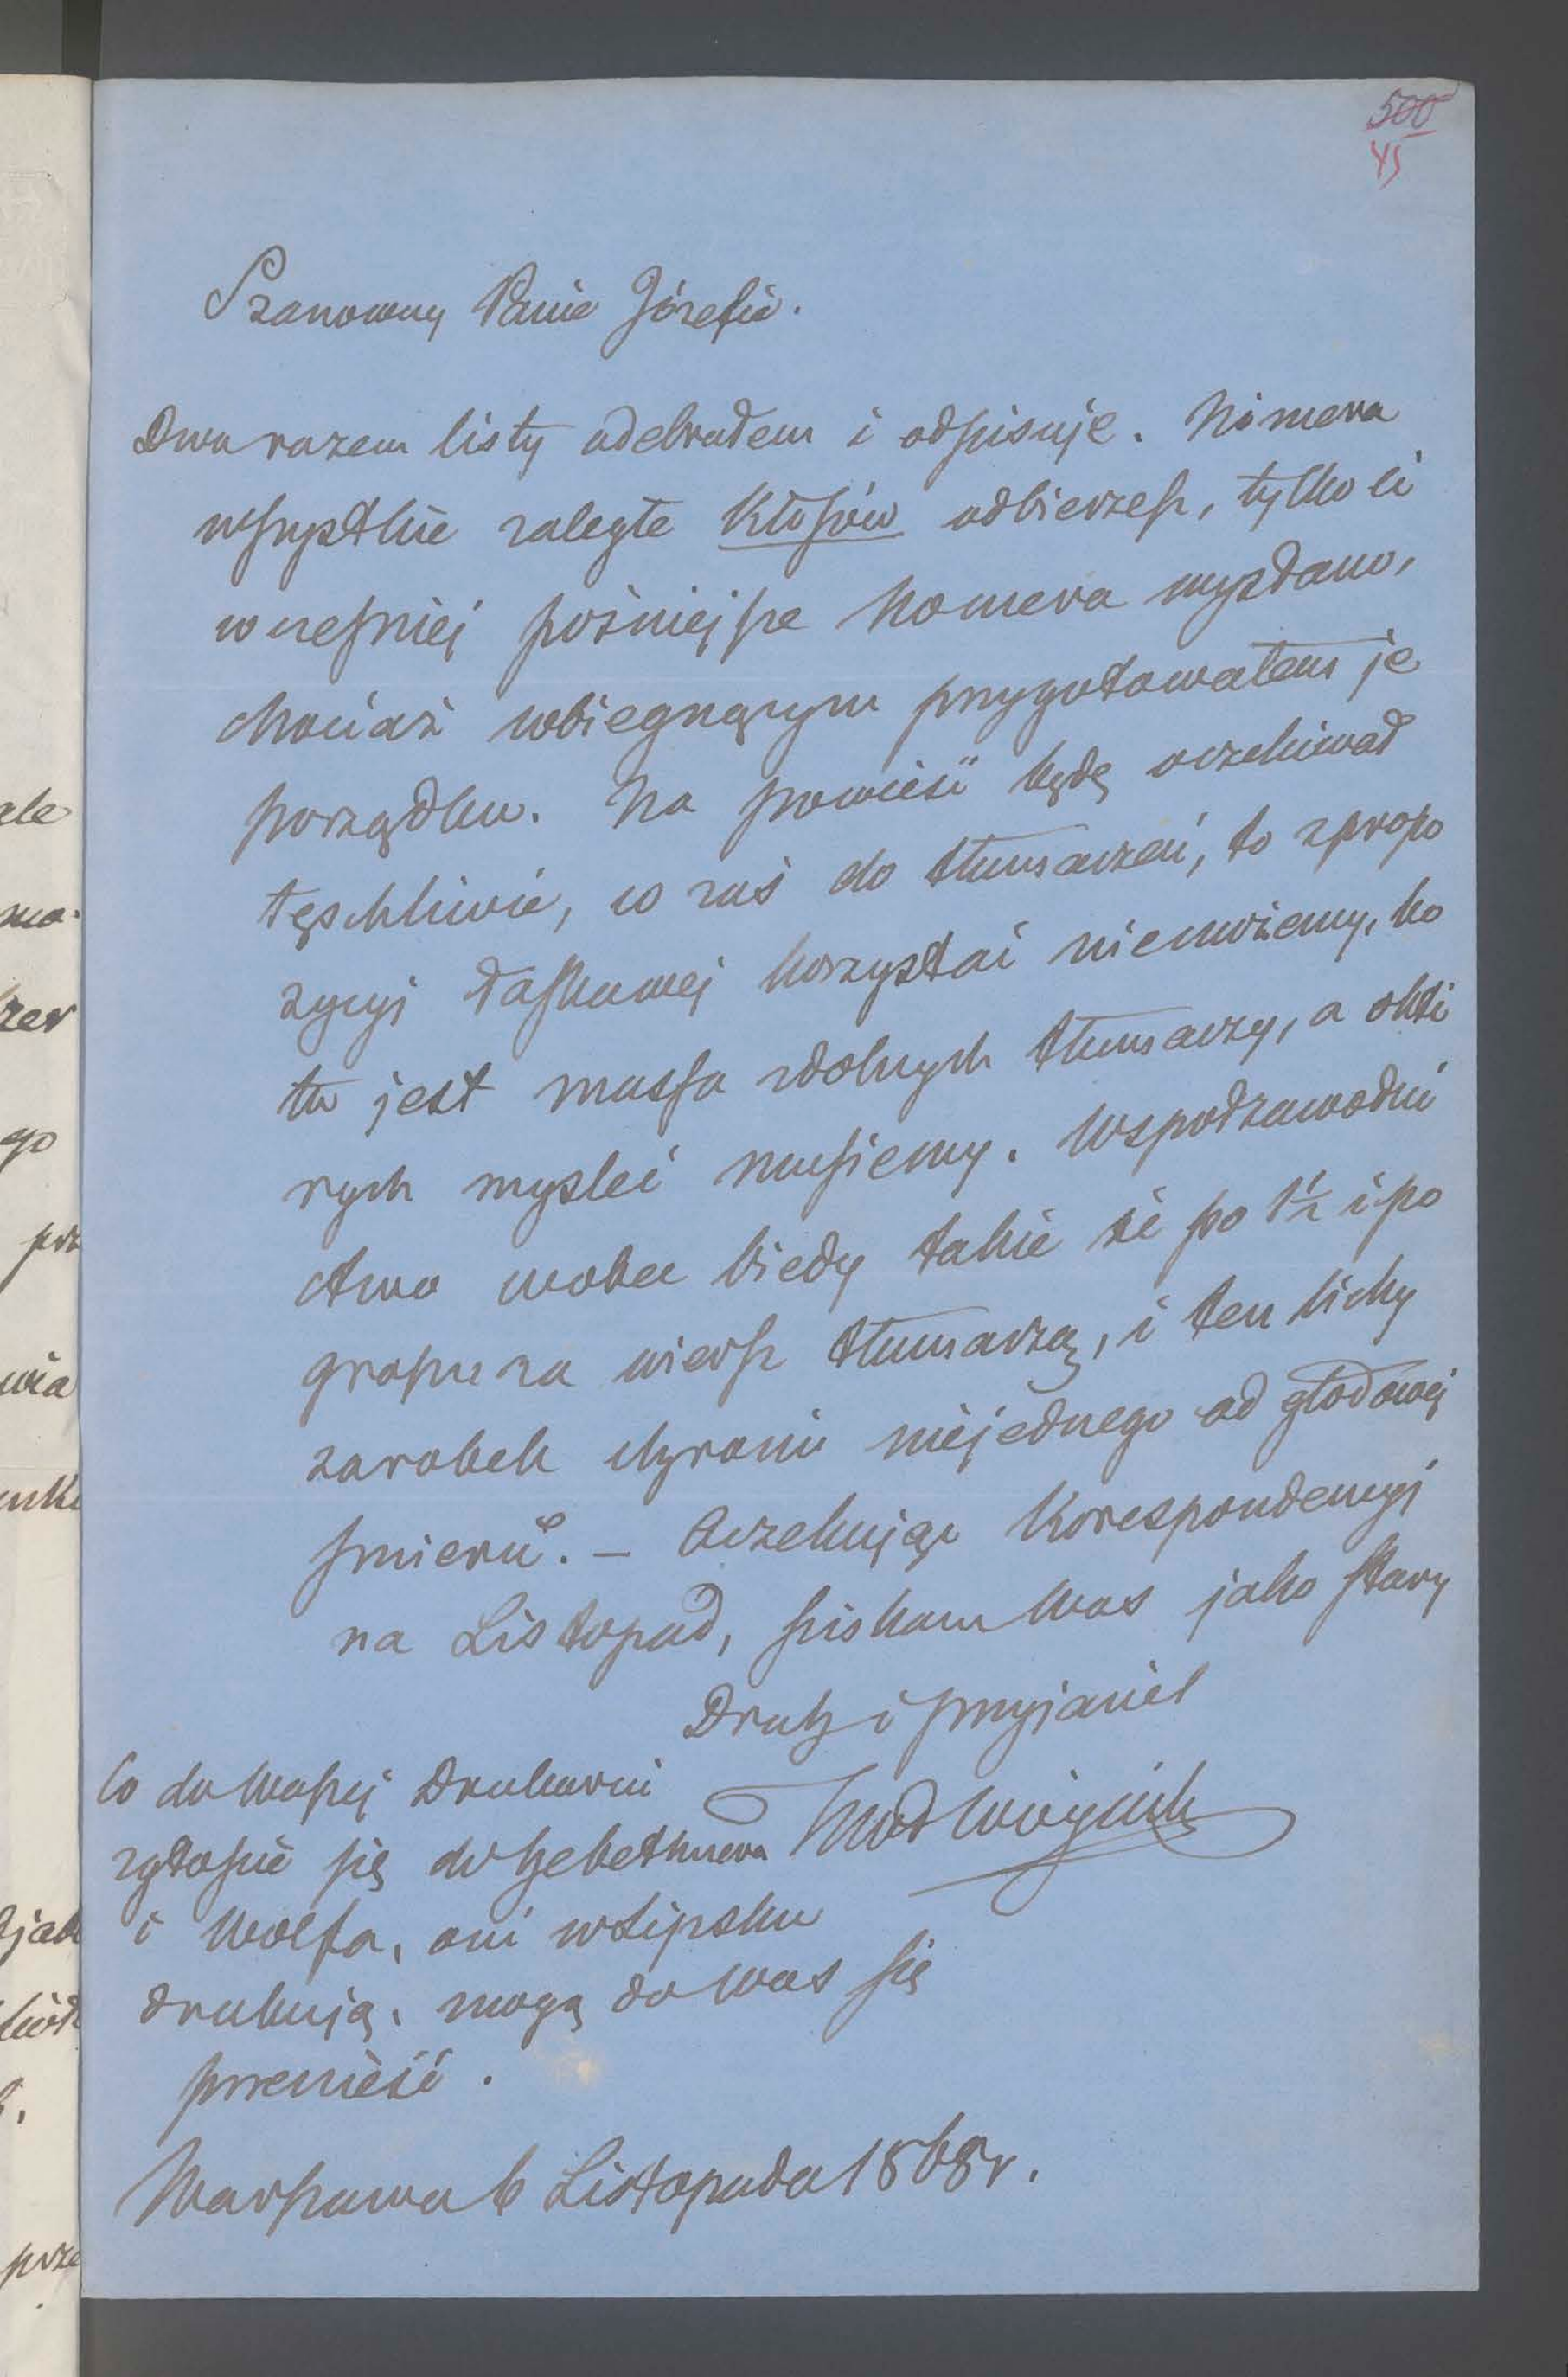 500
45
Szanowny Panie Józefie.
Dwa razem listy odebrałem i odpisuję. Nomera
wszystkie zaległe Kłosów odbierzesz, tylko ci
wcześniej poźniejsze Nomera wysłano,
chociaż wbiegnącym przygotowałem je
porządku. Na powieść będę oczekiwał
tęschliwie, co zaś do tłumaczeń, to z propo
zycyi łaskawej korzystać niemożemy, bo
tu jest massa zdolnych tłumaczy, a októ
rych mysleć musiemy. Wspołzawodni
ctwo wobec biedy takie że po 1½ i po
groszu za wiersz tłumaczą, i ten lichy
zarobek chroni niejednego od głodowej
śmierci. — Oczekując Korespondencyi
na Listopad, ściskam Was jako stary
Druh i przyjaciel
KWł Wóycicki
Co do Waszej Drukarni
zgłoście się do Gebethnera
i Wolfa, oni w Lipsku
drukują, mogą do Was się
przenieść.
Warszawa 6 Listopada 1868 r.